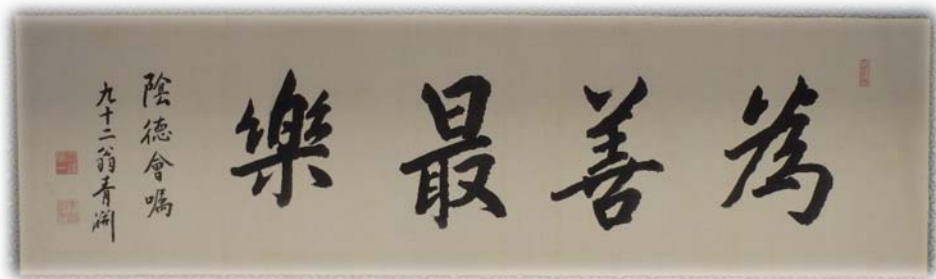 為善最樂
陰德會嘱
九十二翁青淵